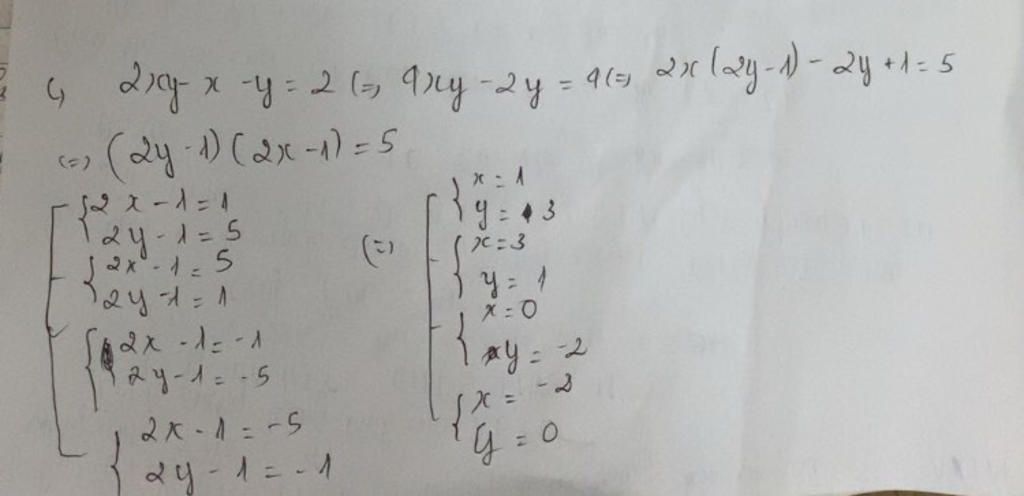 c, 2xy - x - y = 2 (=) 4xy - 2y = 4 (=) 2x(2y-1) - 2y + 1 = 5
(=) (2y - 1)(2x - 1) = 5
2x - 1 = 1
2y - 1 = 5
2x - 1 = 5
2y - 1 = 1
2x - 1 = -1
2y - 1 = -5
2x - 1 = -5
2y - 1 = -1
(=)
x = 1
y = 3
x = 3
y = 1
x = 0
y = -2
x = -2
y = 0